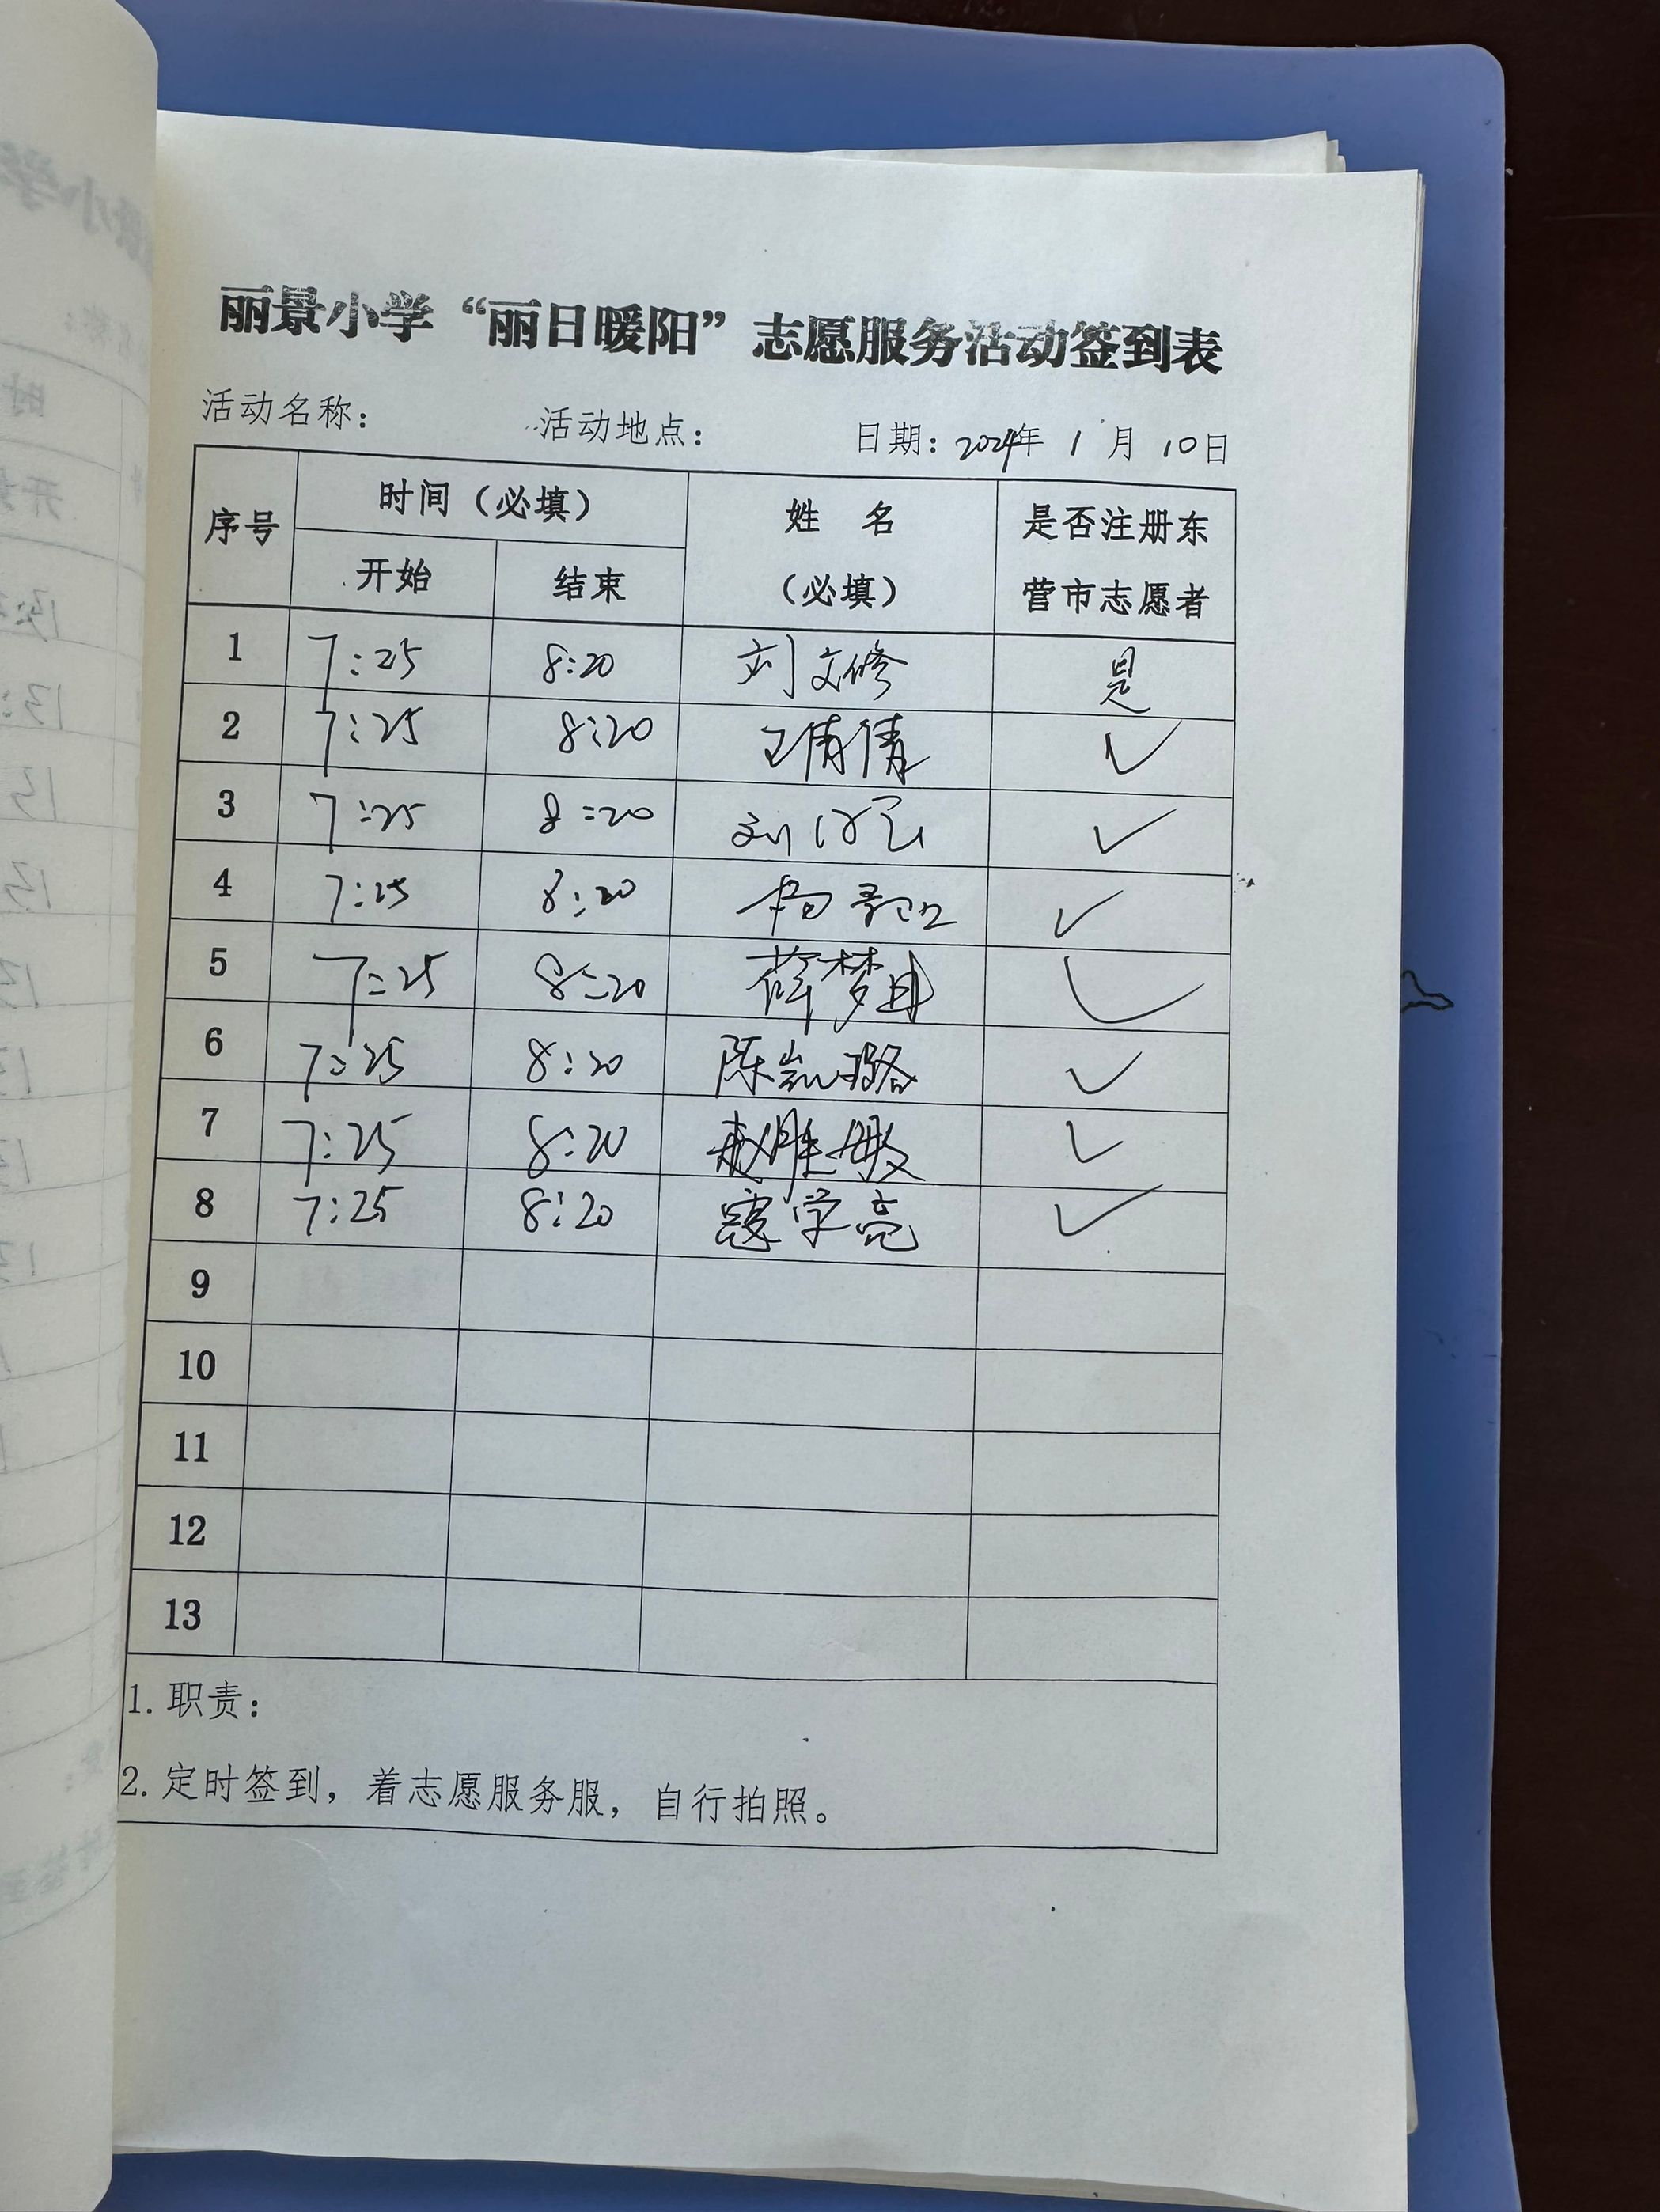 丽景小学“丽日暖阳”志愿服务活动签到表
活动名称： 活动地点： 日期：2024年 1 月 10日
序号 时间（必填） 姓 名 是否注册东
开始 结束 （必填） 营市志愿者
1 7:25 8:20 刘文修 是
2 7:25 8:20 王倩倩 ✓
3 7:25 8:20 刘 ✓
4 7:25 8:20 杨 ✓
5 7:25 8:20 薛梦 ✓
6 7:25 8:20 陈凯璐 ✓
7 7:25 8:20 赵胜敏 ✓
8 7:25 8:20 寇学亮 ✓
9
10
11
12
13
1. 职责：
2. 定时签到，着志愿服务服，自行拍照。